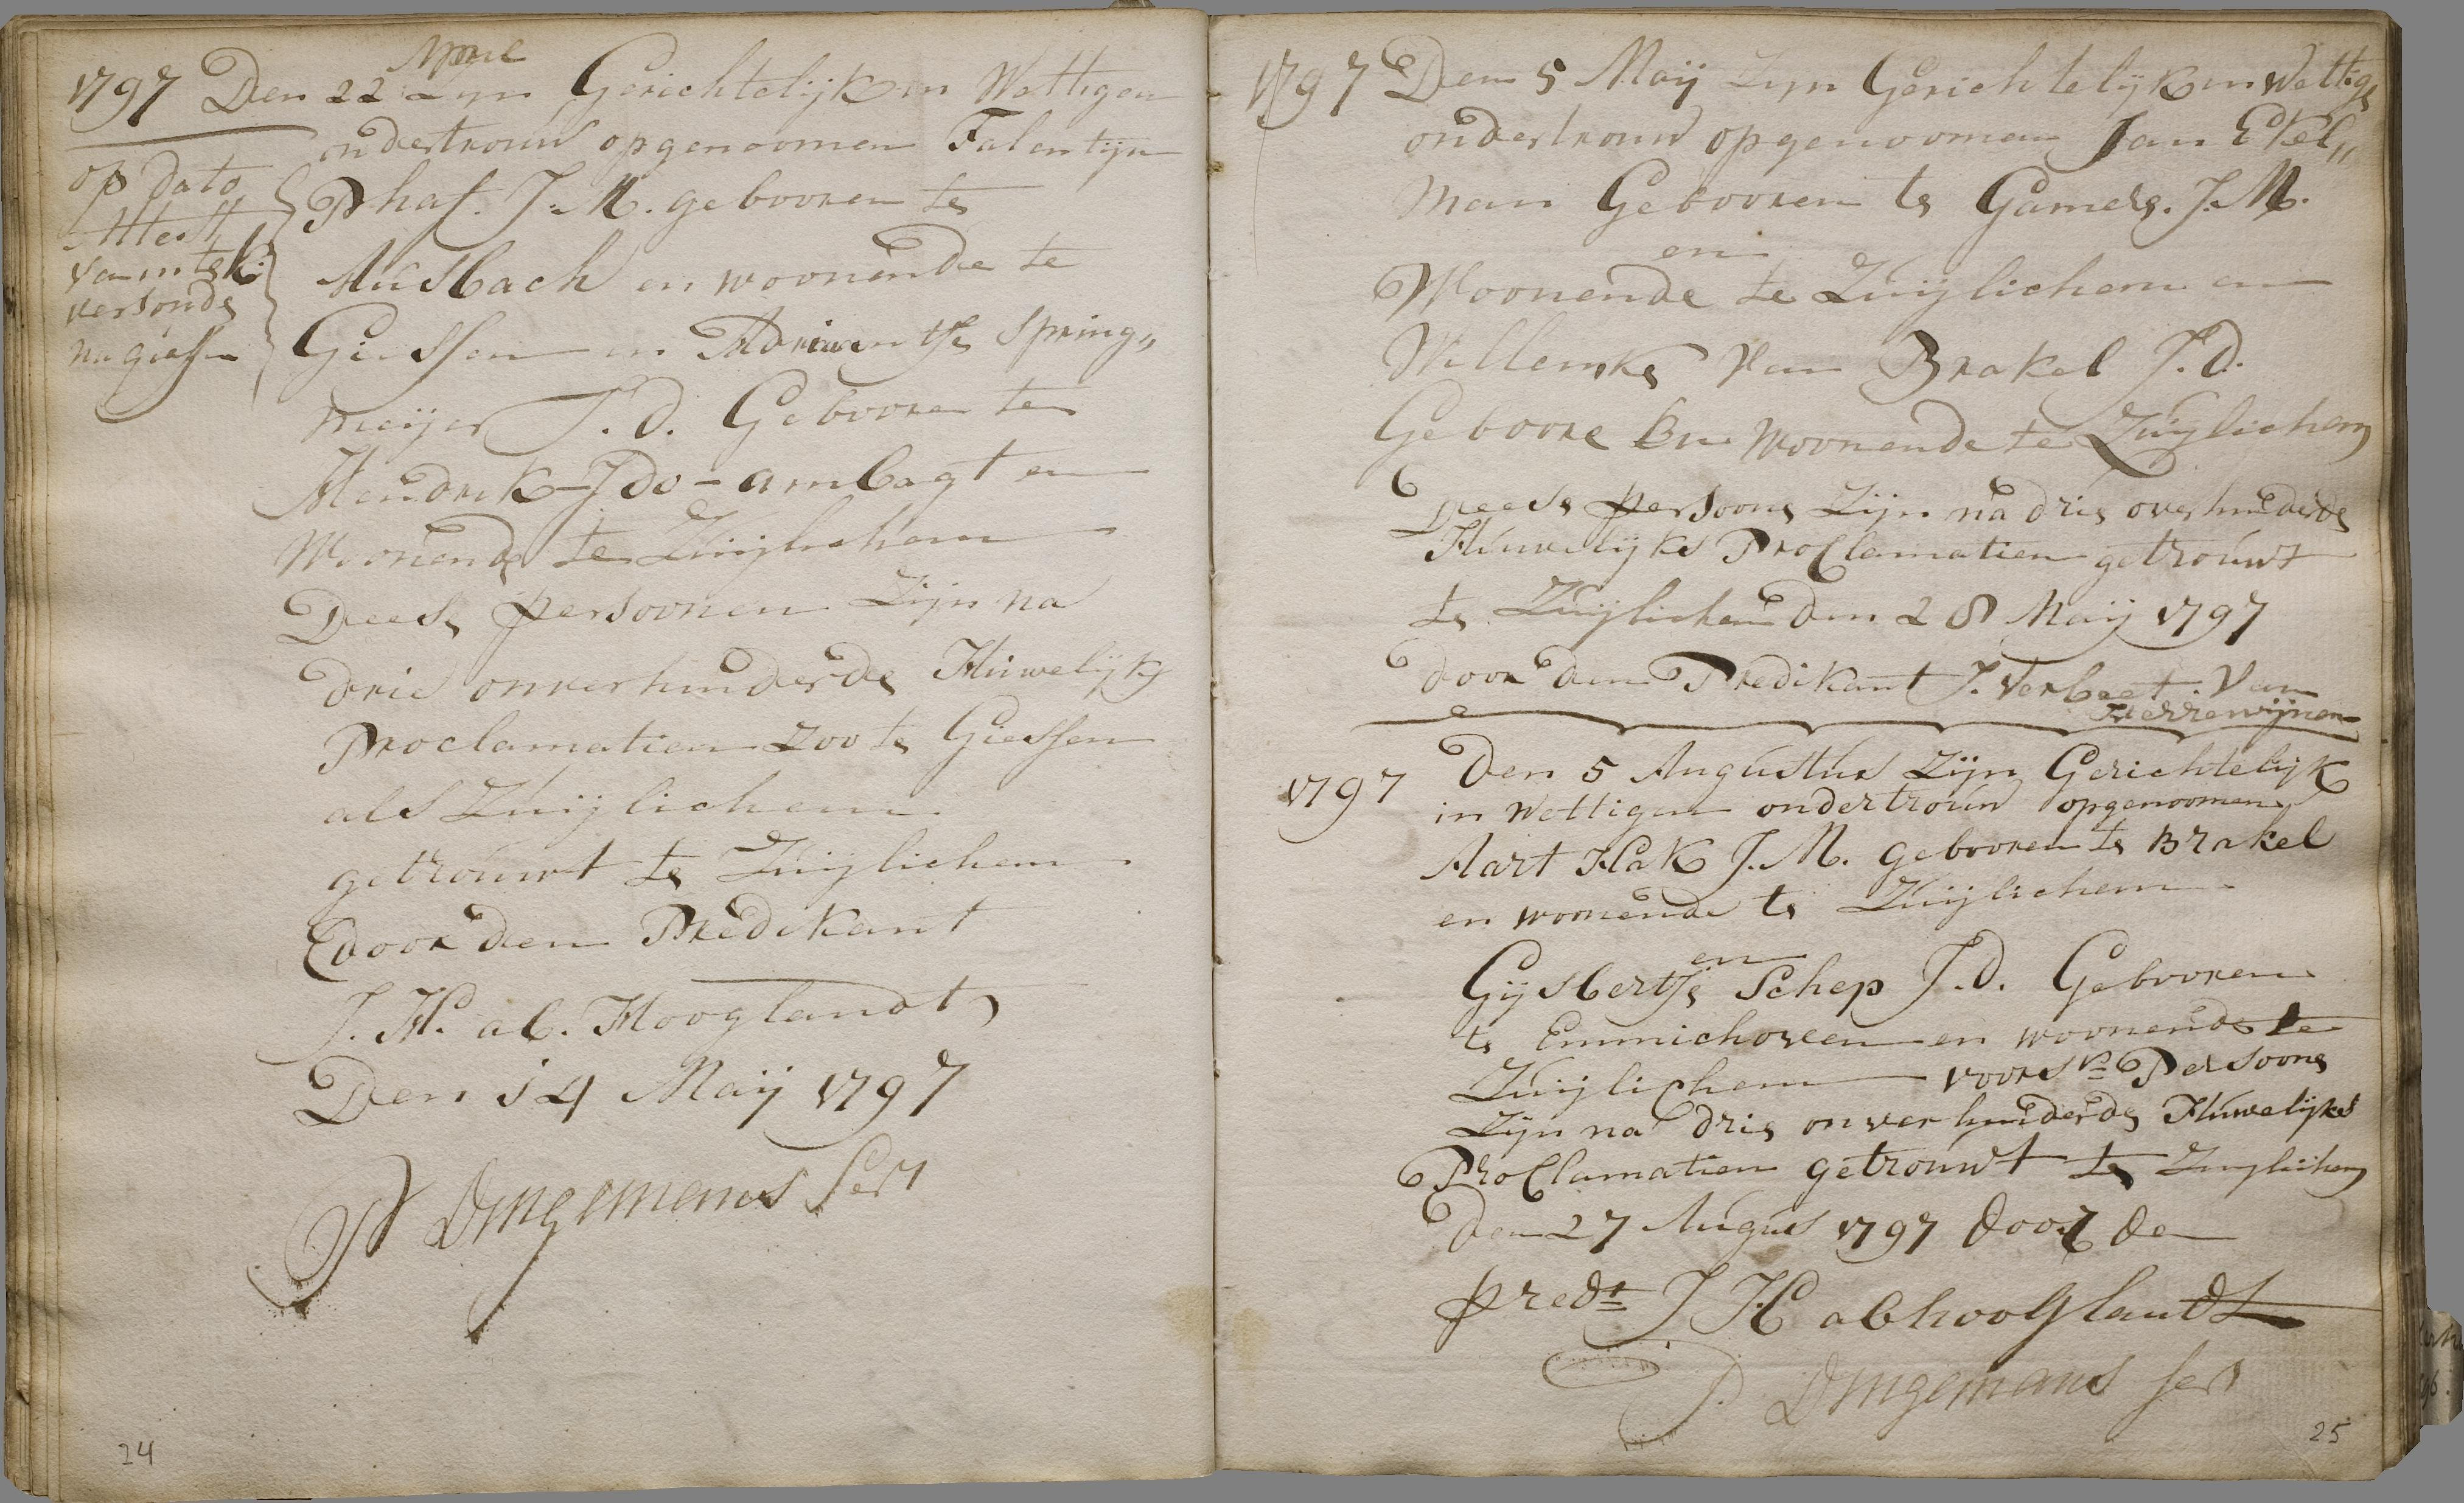 1797 Den 22 April Zyn Gerichtelijk in Wettigen
ondertrouw opgenoomen Falentijn
Phaf. J. M. gebooren te
Ausbach en woonende te
Giessen en Adriaantje Spring„
meijer J. d. Geboore te
Hendrik-Ido-ambagt en
Woonende te Zuijlichem
Deese persoonen Zijn na
drie onverhinderde Huwelijks
Proclamatien zoo te Giessen
als Zuijlichem
getrouwt te Zuijlichem
door den Predikant
J. H. ab. Hooglandt
Den 14 Maij 1797
Dingemans Secr
op dato
Attest
van
versonde
na giessen
24
1797 Den 5 Maij Zyn Gerichtelijk in Wettige
ondertrouw opgenoomen Jan Ekel„
man Gebooren te Gamere. J. M.
en
Woonende te Zuijlichem en
Willemke Van Brakel J. d.
Geboore En Woonende te Zuijlichem
Deese persoone Zijn na drie overhinderde
Huwelijks Proclamatien getrouwt
te Zuijlichem den 28 Maij 1797
door den Predikant J. Verbeet. Van
Herrewijnen
1797 Den 5 Augustus Zijn Gerichtelijk
in Wettigen ondertrouw opgenoomen
Aart Hak J. M. gebooren te Brakel
en woonende te Zuijlichem
en
Gijsbertje Schep J. d. Gebooren
te Emmichoven en woonende te
Zuijlichem voors n Persoone
Zijn na drie onverhinderde Huwelijks
Proclamatien getrouwt te Zuijlichem
Den 27 Augus 1797 door de
predt J H abhooglandt
P. Dingemans Secr
25